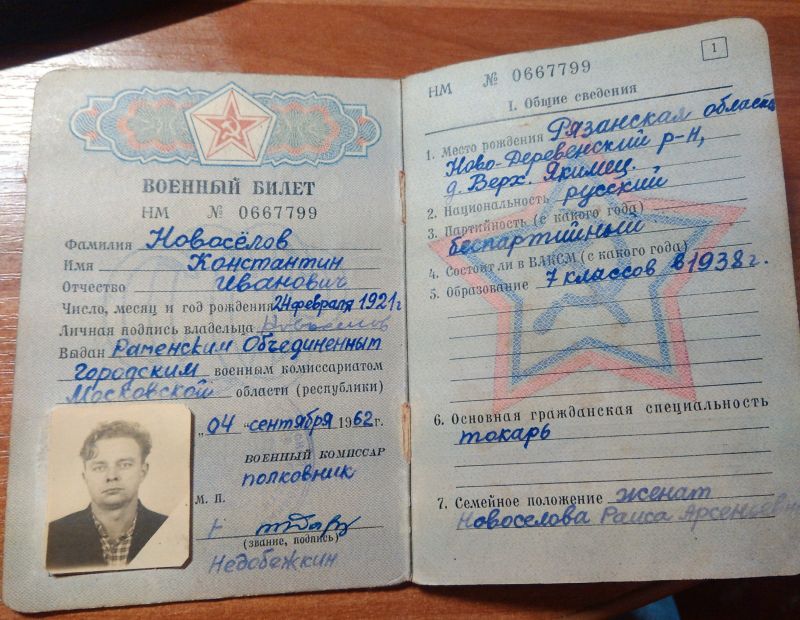 ВОЕННЫЙ БИЛЕТ
НМ № 0667799
Фамилия Новосёлов
Имя Константин
Отчество Иванович
Число, месяц и год рождения 24 февраля 1921 г
Личная подпись владельца Новоселов
Выдан Раменским Объединенным
городским военным комиссариатом
Московской области (республики)
„04 “ сентября 1962 г.
ВОЕННЫЙ КОМИССАР
полковник
М. П.
(звание, подпись)
Недобежкин
1
НМ № 0667799
I. Общие сведения
1. Место рождения Рязанская область
Ново-Деревенский р-н,
д. Верх. Якимец.
2. Национальность русский
3. Партийность (с какого года)
беспартийный
4. Состоит ли в ВЛКСМ (с какого года)
5. Образование 7 классов в 1938 г.
6. Основная гражданская специальность
токарь
7. Семейное положение женат
Новоселова Раиса Арсеньевна